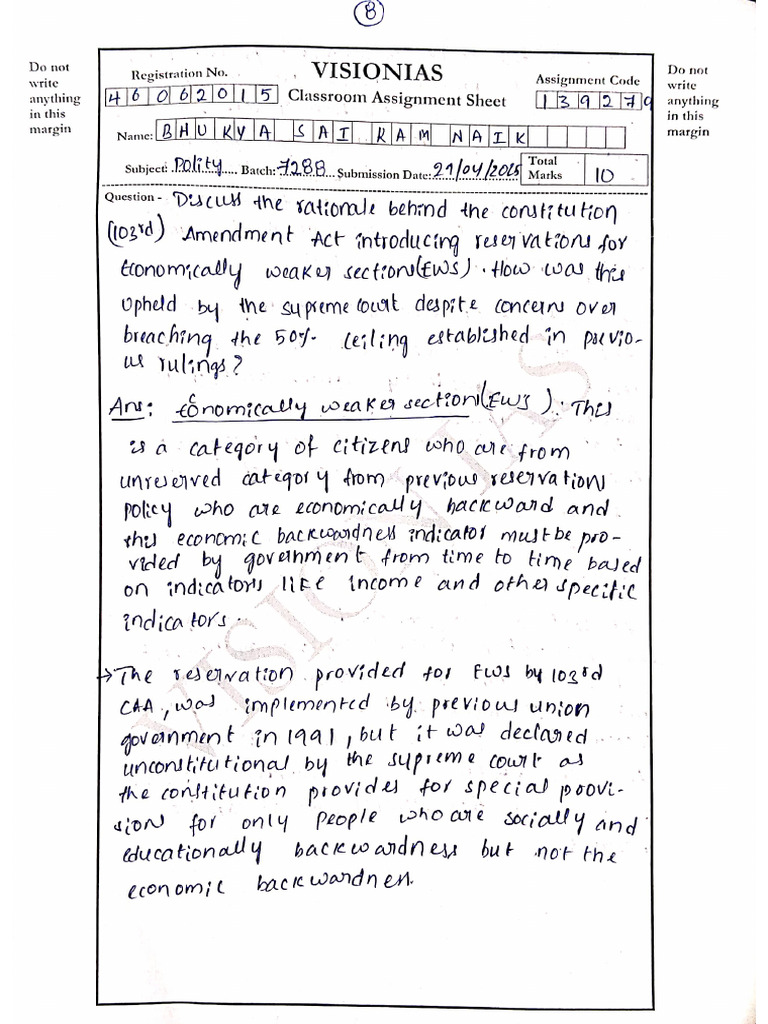 8
Do not
write
anything
in this
margin
Registration No. VISIONIAS Assignment Code
46062015 Classroom Assignment Sheet 139279
Name: BHUKYA SAI RAM NAIK
Subject: Polity Batch: 7288 Submission Date: 21/04/2025 Total Marks 10
Do not
write
anything
in this
margin
Question - Discuss the rationale behind the constitution
(103rd) Amendment Act introducing reservations for
Economically weaker sections(EWS). How was this
upheld by the supreme court despite concerns over
breaching the 50% ceiling established in previo-
us rulings?
Ans: Economically weaker sections(EWS). This
is a category of citizens who are from
unreserved category from previous reservation
policy who are economically backward and
this economic backwardness indicator must be pro-
vided by government from time to time based
on indicators like income and other specific
indicators.
→ The reservation provided for EWS by 103rd
CAA, was implemented by previous union
government in 1991, but it was declared
unconstitutional by the supreme court as
the constitution provides for special provi-
sions for only people who are socially and
educationally backwardness but not the
economic backwardness.
VISIONIAS